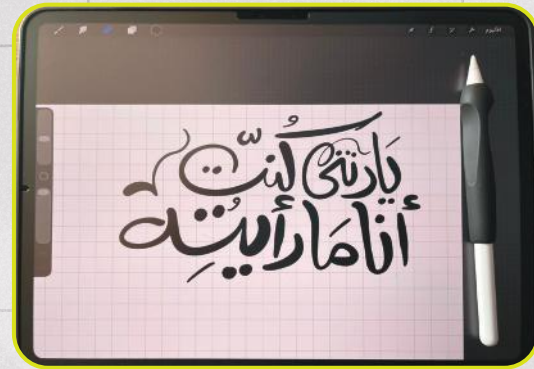 يَارتني كُنتّ
أنا مَا رأيتُه